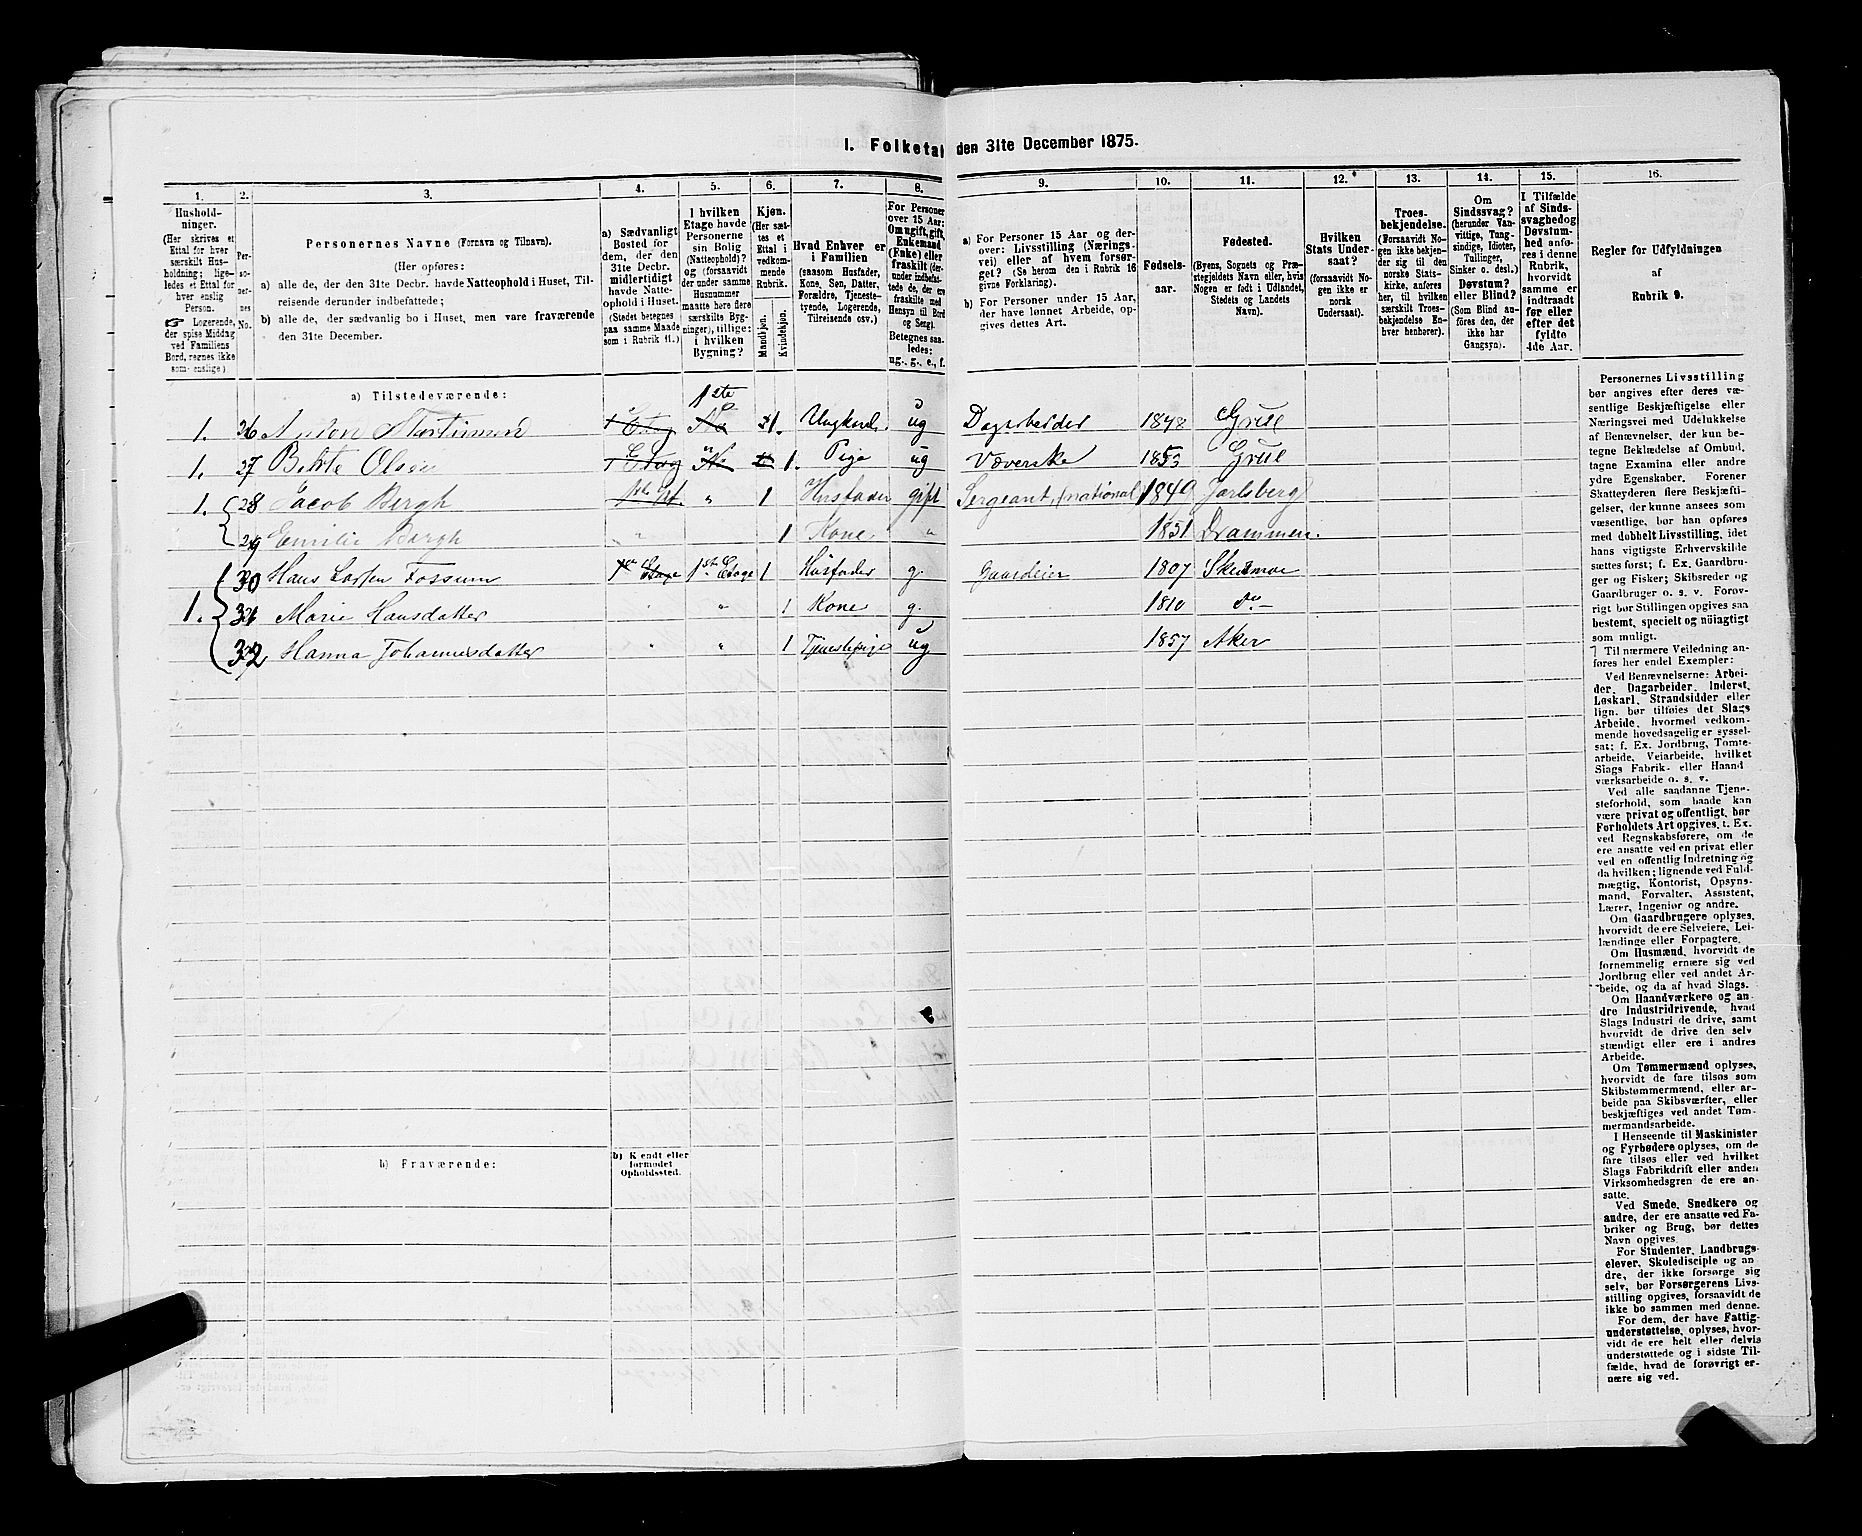 I. Folketal den 31te December 1875.
1. 2. 3. 4. 5. 6. 7. 8. 9. 10. 11. 12. 13. 14. 15. 16.
Husholdninger.
(Her skrives et
Ettal for hver
særskilt Husholdning;
ligeledes et Ettal for
hver enslig
Person.
☞ Logerende,
der spise Middag
ved Familiens
Bord, regnes ikke
som enslige.)
Personernes No.
Personernes Navne (Fornavn og Tilnavn).
(Her opføres:
a) alle de, der den 31te Decbr. havde Natteophold i Huset, Tilreisende derunder indbefattede;
b) alle de, der sædvanlig bo i Huset, men vare fraværende
den 31te December.
a) Sædvanligt
Bosted for
dem, der den
31te Decbr.
midlertidigt
havde Natteophold i Huset.
(Stedet betegnes
paa samme Maade
som i Rubrik 11.)
I hvilken
Etage havde
Personerne
sin Bolig
(Natteophold)?
og (forsaavidt
der under samme
Husnummer
maatte høre flere
særskilte Bygninger), tillige:
i hvilken
Bygning?
Kjøn.
(Her sættes et
Ettal i
vedkommende
Rubrik.
Mandkjøn.
Kvindekjøn.
Hvad Enhver er
i Familien
(saasom Husfader,
Kone, Søn, Datter,
Forældre, Tjenestetyende, Logerende,
Tilreisende osv.)
For Personer
over 15 Aar:
Om ugift, gift,
Enkemand
(Enke) eller
fraskilt (derunder indbefattede, der ere
fraskilte med
Hensyn til Bord
og Seng).
Betegnes saaledes:
ug., g., e., f.
a) For Personer 15 Aar og derover: Livsstilling (Næringsvei) eller af hvem forsørget? (Se herom den i Rubrik 16
givne Forklaring).
b) For Personer under 15 Aar,
der have lønnet Arbeide, opgives dettes Art.
Fødselsaar.
Fødested.
(Byens, Sognets og Præstegjeldets Navn eller, hvis
Nogen er født i Udlandet,
Stedets og Landets
Navn).
Hvilken
Stats Undersaat?
(forsaavidt Nogen ikke er
norsk
Undersaat).
Troesbekjendelse.
(Forsaavidt Nogen ikke bekjender sig til den
norske Statskirke, anføres
her, til hvilken
særskilt Troesbekjendelse Enhver henhører).
Om
Sindssvag?
(herunder Vanvittige, Tungsindige, Idioter,
Tullinger,
Sinker o. desl.)
Døvstum?
eller Blind?
(Som Blind anføres den, der
ikke har
Gangsyn).
I Tilfælde
af Sindssvaghed og
Døvstumhed anføres i denne
Rubrik,
hvorvidt
samme er
indtraadt
før eller
efter det
fyldte
4de Aar.
Regler for Udfyldningen
af
Rubrik 9.
a) Tilstedeværende:
1. 26 Anton Martinsen 1 Etag 1ste No 1. Ungkarl ug Dagarbeider 1848 Grue
1. 27 Berte Olsen 1 Etag " No 1. Pige ug Væverske 1853 Grue
1. 28 Jacob Bergh " 1 Husfader gift Sergeant, (national) 1849 Jarlsberg
29 Emilie Bergh " 1 Kone " 1851 Drammen.
30 Hans Larsen Fossum 1ste Etage 1ste Etage 1 Husfader g. Gaardeier 1807 Skedsmoe
1. 31 Marie Hansdatter " " 1 Kone g. 1810 do
32 Hanna Johannesdatter " " 1 Tjenestepige ug 1857 Aker
b) Fraværende:
b) Kjendt eller
formodet
Opholdssted.
Personernes Livsstilling
bør angives efter deres væsentlige Beskjæftigelse eller
Næringsvei med Udelukkelse
af Benævnelser, der kun betegne Beklædelse af Ombud,
tagne Examina eller andre
ydre Egenskaber. Forener
Skatteyderen flere Beskjæftigelser, der kunne ansees som
væsentlige, bør han opføres
med dobbelt Livsstilling, idet
hans vigtigste Erhvervskilde
sættes først; f. Ex. Gaardbruger og Fisker; Skibsreder og
Gaardbruger o. s. v. Forøvrigt bør Stillingen opgives saa
bestemt, specielt og nøiagtigt
som muligt.
Til nærmere Veiledning anføres her endel Exempler:
Ved Benævnelserne: Arbeider, Dagarbeider, Inderst,
Løskarl, Strandsidder eller
lign. bør tilføies det Slags
Arbeide, hvormed vedkommende hovedsagelig er sysselsat; f. Ex. Jordbrug, Tomtearbeide, Veiarbeide, hvilket
Slags Fabrik- eller Haandværksarbeide o. s. v.
Ved alle saadanne Tjenesteforhold, som baade kan
være privat og offentligt, bør
Forholdets Art opgives, t. Ex.
ved Regnskabsførere, om de
ere ansatte ved en privat eller
ved en offentlig Indretning og
da hvilken; lignende ved Fuldmægtig, Kontorist, Opsynsmand, Forvalter, Assistent,
Lærer, Ingeniør og andre.
Om Gaardbrugere oplyses,
hvorvidt de ere Selveiere, Leilændinge eller Forpagtere.
Om Husmænd, hvorvidt de
fornemmelig ernære sig ved
Jordbrug eller ved andet Arbeide, og da af hvad Slags.
Om Haandværkere og andre Industridrivende, hvad
Slags Industri de drive, samt
hvorvidt de drive den selvstændigt eller ere i andres
Arbeide.
Om Tømmermænd oplyses,
hvorvidt de fare tilsøs som
Skibstømmermænd, eller arbeide paa Skibsværfter, eller
beskjæftiges ved andet Tømmermandsarbeide.
I Henseende til Maskinister
og Fyrbødere oplyses, om de
fare tilsøs eller ved hvilket
Slags Fabrikdrift eller anden
Virksomhedsgren de ere ansatte.
Ved Smede, Snedkere og
andre, der ere ansatte ved Fabriker og Brug, bør dettes
Navn opgives.
For Studenter, Landbrugselever, Skoledisciple og andre, der ikke forsørge sig
selv, bør Forsørgerens Livsstilling opgives, forsaavidt de
ikke bo sammen med denne.
For dem, der have Fattigunderstøttelse, oplyses, hvorvidt de ere helt eller delvis
understøttede og i sidste Tilfælde, hvad de forøvrigt ernære sig ved.